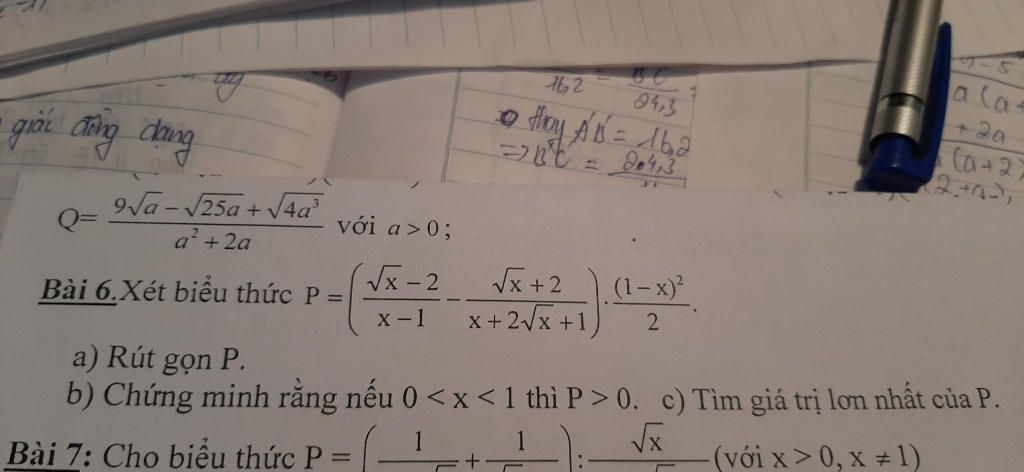 giải đồng dạng
16,2 = BC / 24,3
thay A'B' = 16,2
a(a+
+ 2a
(a+2)
Q= (9√a − √25a + √4a³) / (a² + 2a) với a > 0;
Bài 6.Xét biểu thức P = ( (√x − 2)/(x − 1) − (√x + 2)/(x + 2√x + 1) ) . (1 − x)²/2.
a) Rút gọn P.
b) Chứng minh rằng nếu 0 < x < 1 thì P > 0. c) Tìm giá trị lơn nhất của P.
Bài 7: Cho biểu thức P = ( 1 + 1 ) : √x (với x > 0, x ≠ 1)